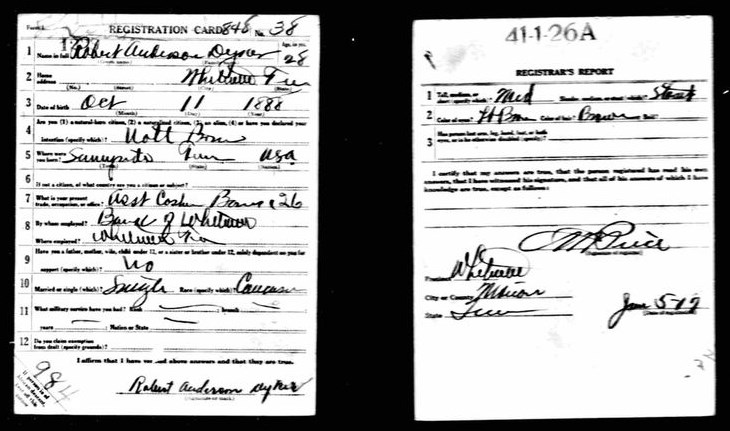 Form 1
REGISTRATION CARD 848 No. 38
1 Name in full Robert Anderson Dykes Age, in yrs. 28
(Given name) (Family name)
2 Home address Whitwell Tenn
(No.) (Street) (City) (State)
3 Date of birth Oct 11 1888
(Month) (Day) (Year)
4 Are you (1) a natural-born citizen, (2) a naturalized citizen, (3) an alien, (4) or have you declared your intention (specify which)? Natl Born
5 Where were you born? Tenn USA
(Town) (State) (Nation)
6 If not a citizen, of what country are you a citizen or subject?
7 What is your present trade, occupation, or office? Asst Cash 26
8 By whom employed? Bank of Whitwell
Where employed? Whitwell
9 Have you a father, mother, wife, child under 12, or a sister or brother under 12, solely dependent on you for support (specify which)? No
10 Married or single (which)? Single Race (specify which)? Caucasian
11 What military service have you had? Rank ; branch
years ; Nation or State
12 Do you claim exemption from draft (specify grounds)?
I affirm that I have verified above answers and that they are true.
984
Robert Anderson Dykes
(Signature or mark)
41-1-26A
REGISTRAR'S REPORT
1 Tall, medium, or short (specify which)? Med Slender, medium, or stout (which)? Stout
2 Color of eyes? Color of hair? Brown Bald?
3 Has person lost arm, leg, hand, foot, or both eyes, or is he otherwise disabled (specify)?
I certify that my answers are true, that the person registered has read his own answers, that I have witnessed his signature, and that all of his answers of which I have knowledge are true, except as follows:
Price
(Signature of registrar)
Precinct Whitwell
City or County Marion
State Tenn
June 5-17
(Date of registration)